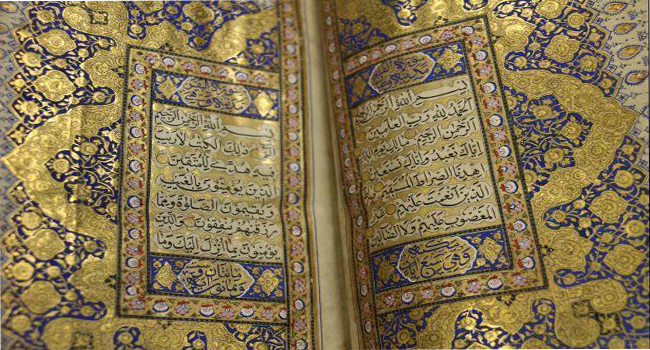 بسم الله الرحمن الرحيم
الحمد لله رب العالمين
الرحمن الرحيم مالك يوم الدين
اياك نعبد واياك نستعين
اهدنا الصراط المستقيم
الذين انعمت عليهم
المغضوب عليهم ولا الضالين
وهي سبع
بسم الله الرحمن الرحيم
ذلك الكتاب لا ريب
فيه هدى للمتقين
الذين يؤمنون بالغيب
ويقيمون الصلوة ومما
رزقنهم ينفقون والذين
يؤمنون بما انزل اليك وما